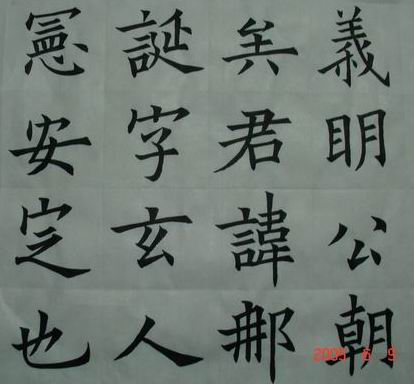 義明公朝
矣君諱那
誕字玄人
憲安定也
6 9